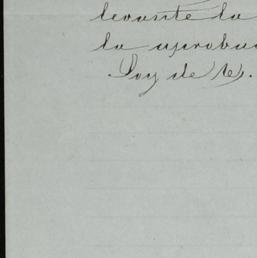 levante la
la aproba
Soy de V.